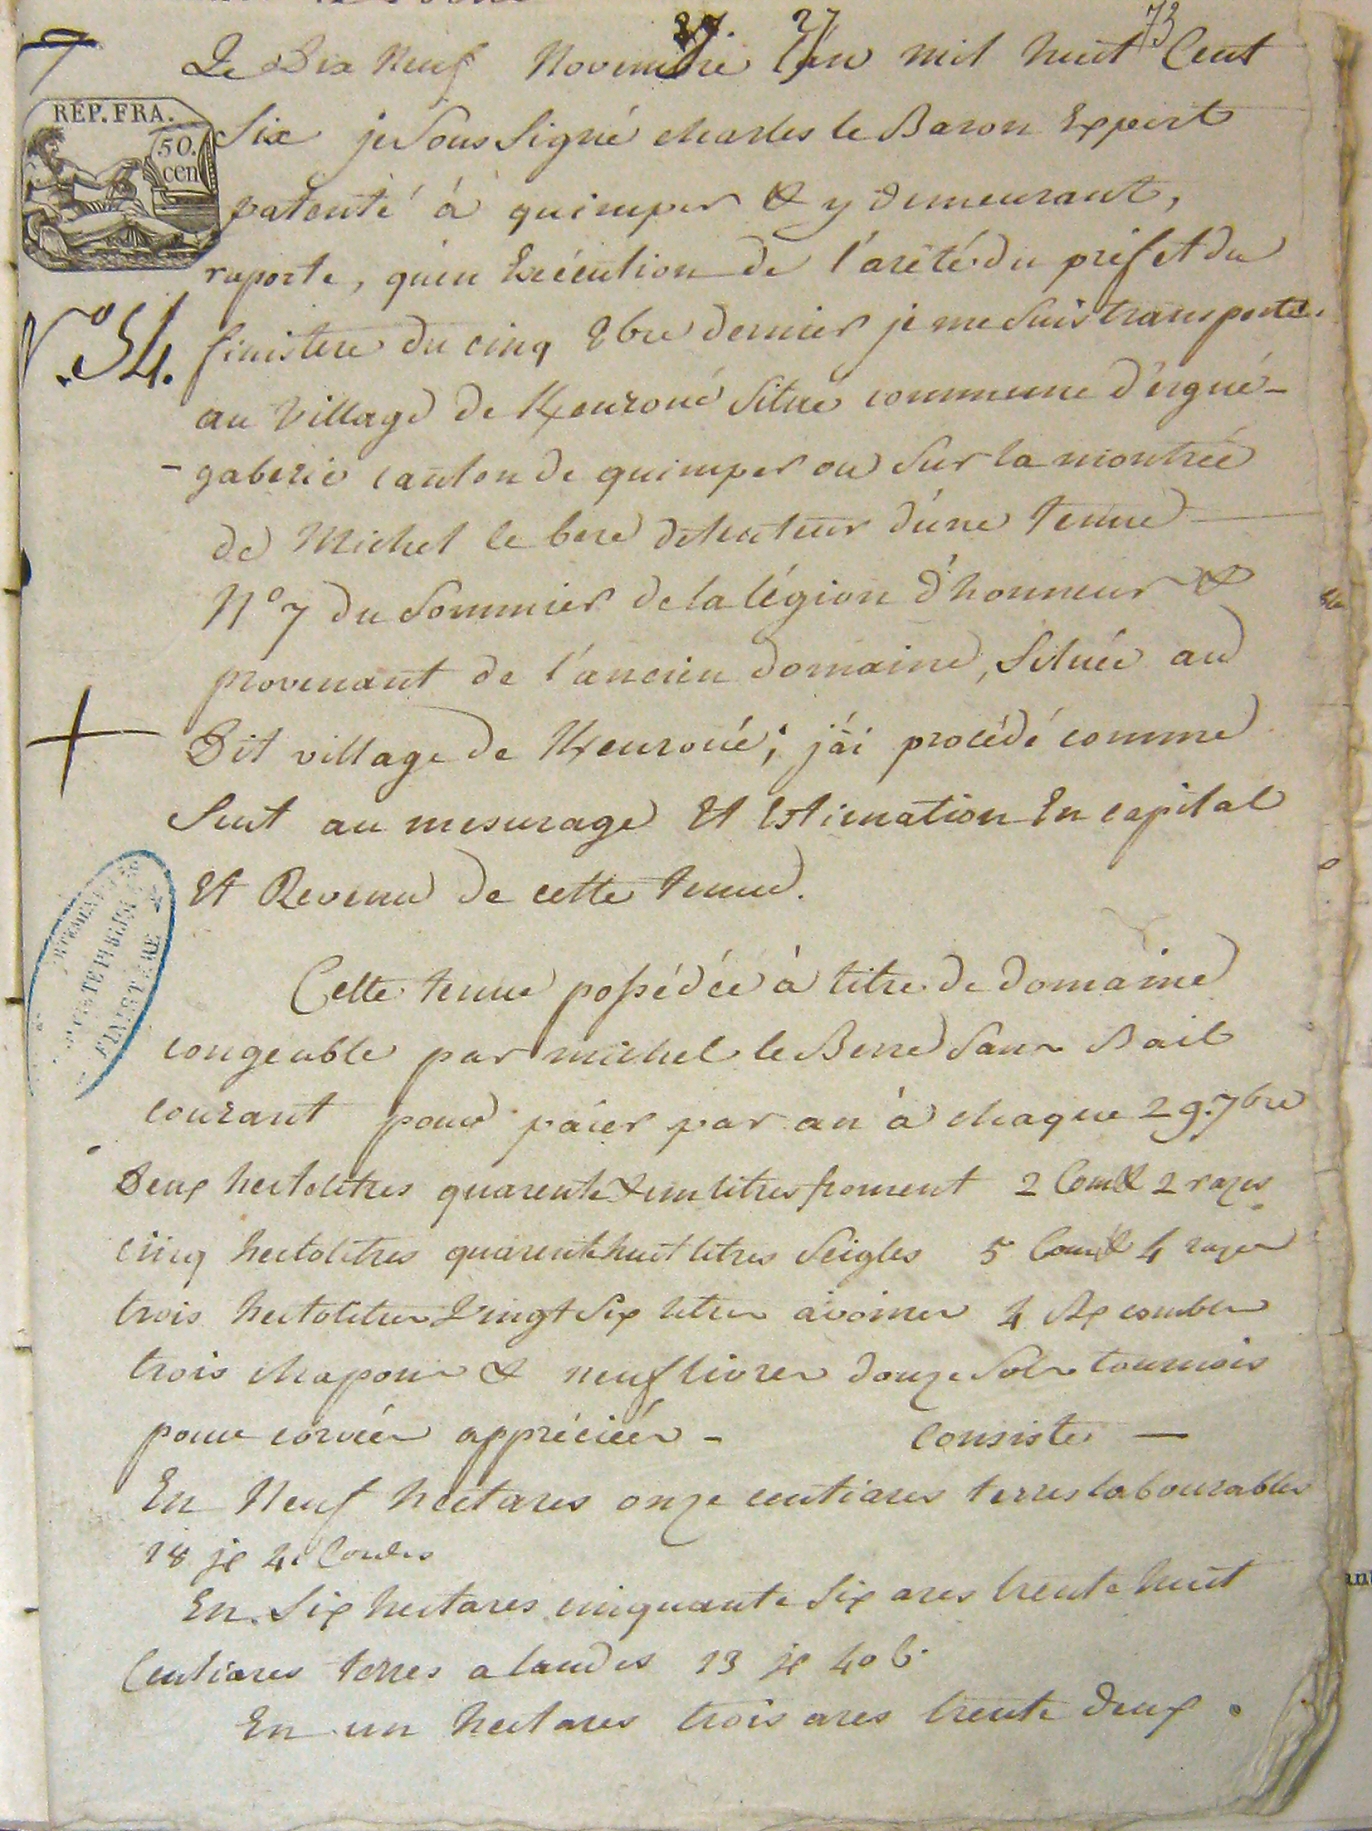 7
27 27 73
Le Dix Neuf Novembre l'an mil huit Cent
REP. FRA.
50.
cen
Six je Sous Signé charles le Baron Expert
patenté à quimper & y demeurant,
raporte, qu'en Exécution de l'arêté du préfet du
N.º 54.
finistere du cinq 8bre dernier je me suis transporté
au Village de Keuroué Situé commune d'ergué-
-gaberic canton de quimper ou sur la montrée
de Michel le bere detenteur d'une tenue
Nº 7 du Sommier de la légion d'honneur &
provenant de l'ancien domaine, Située au
Dit village de Keuroué; j'ai procédé comme
Suit au mesurage Et Estimation En capital
Et Revenu de cette tenue.
FINISTERE
Cette tenue possédée à titre de domaine
congeable par michel le Berre Sans Bail
courant pour païer par an à chaque 29. 7bre
Deux hectolitres quarente & un litres froment 2 Com & 2 razes
cinq hectolitres quarente huit litres Seigles 5 Com & 4 razes
trois hectolitres Vingt Six litres avoines 4 Rx combles
trois chapons & neuf livres douze Sols tournois
pour corvées appréciées - consiste —
En Neuf hectares onze centiares terres labourables
18 je 4. Cordes
En Six hectares cinquante Six ares trente huit
Centiares terres a landes 13 je 40 C.
En un hectares trois ares trente deux